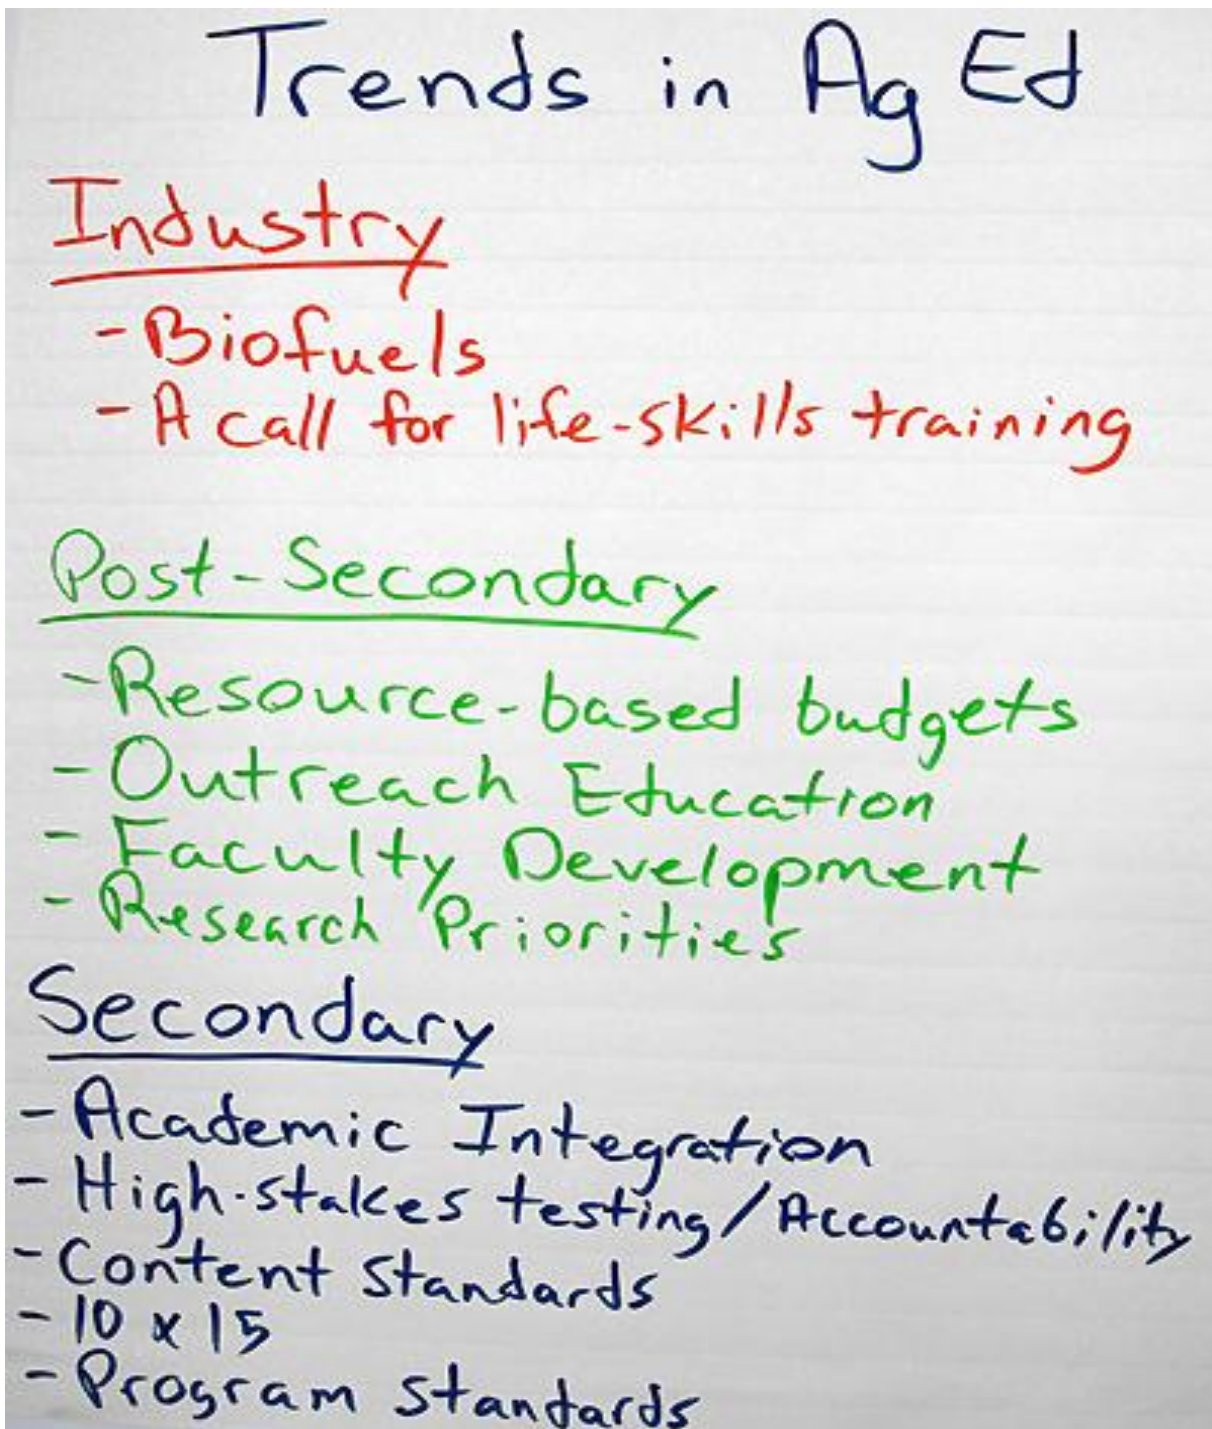 Trends in Ag Ed
Industry
- Biofuels
- A call for life-skills training
Post-Secondary
- Resource-based budgets
- Outreach Education
- Faculty Development
- Research Priorities
Secondary
- Academic Integration
- High-stakes testing/Accountability
- Content Standards
- 10 x 15
- Program Standards